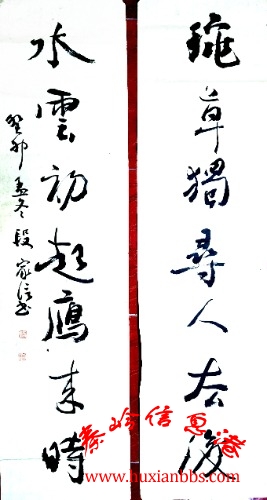 瑤草獨尋人去後
水雲初起鴈來時
癸卯孟冬段家信書
www.huxianbbs.com